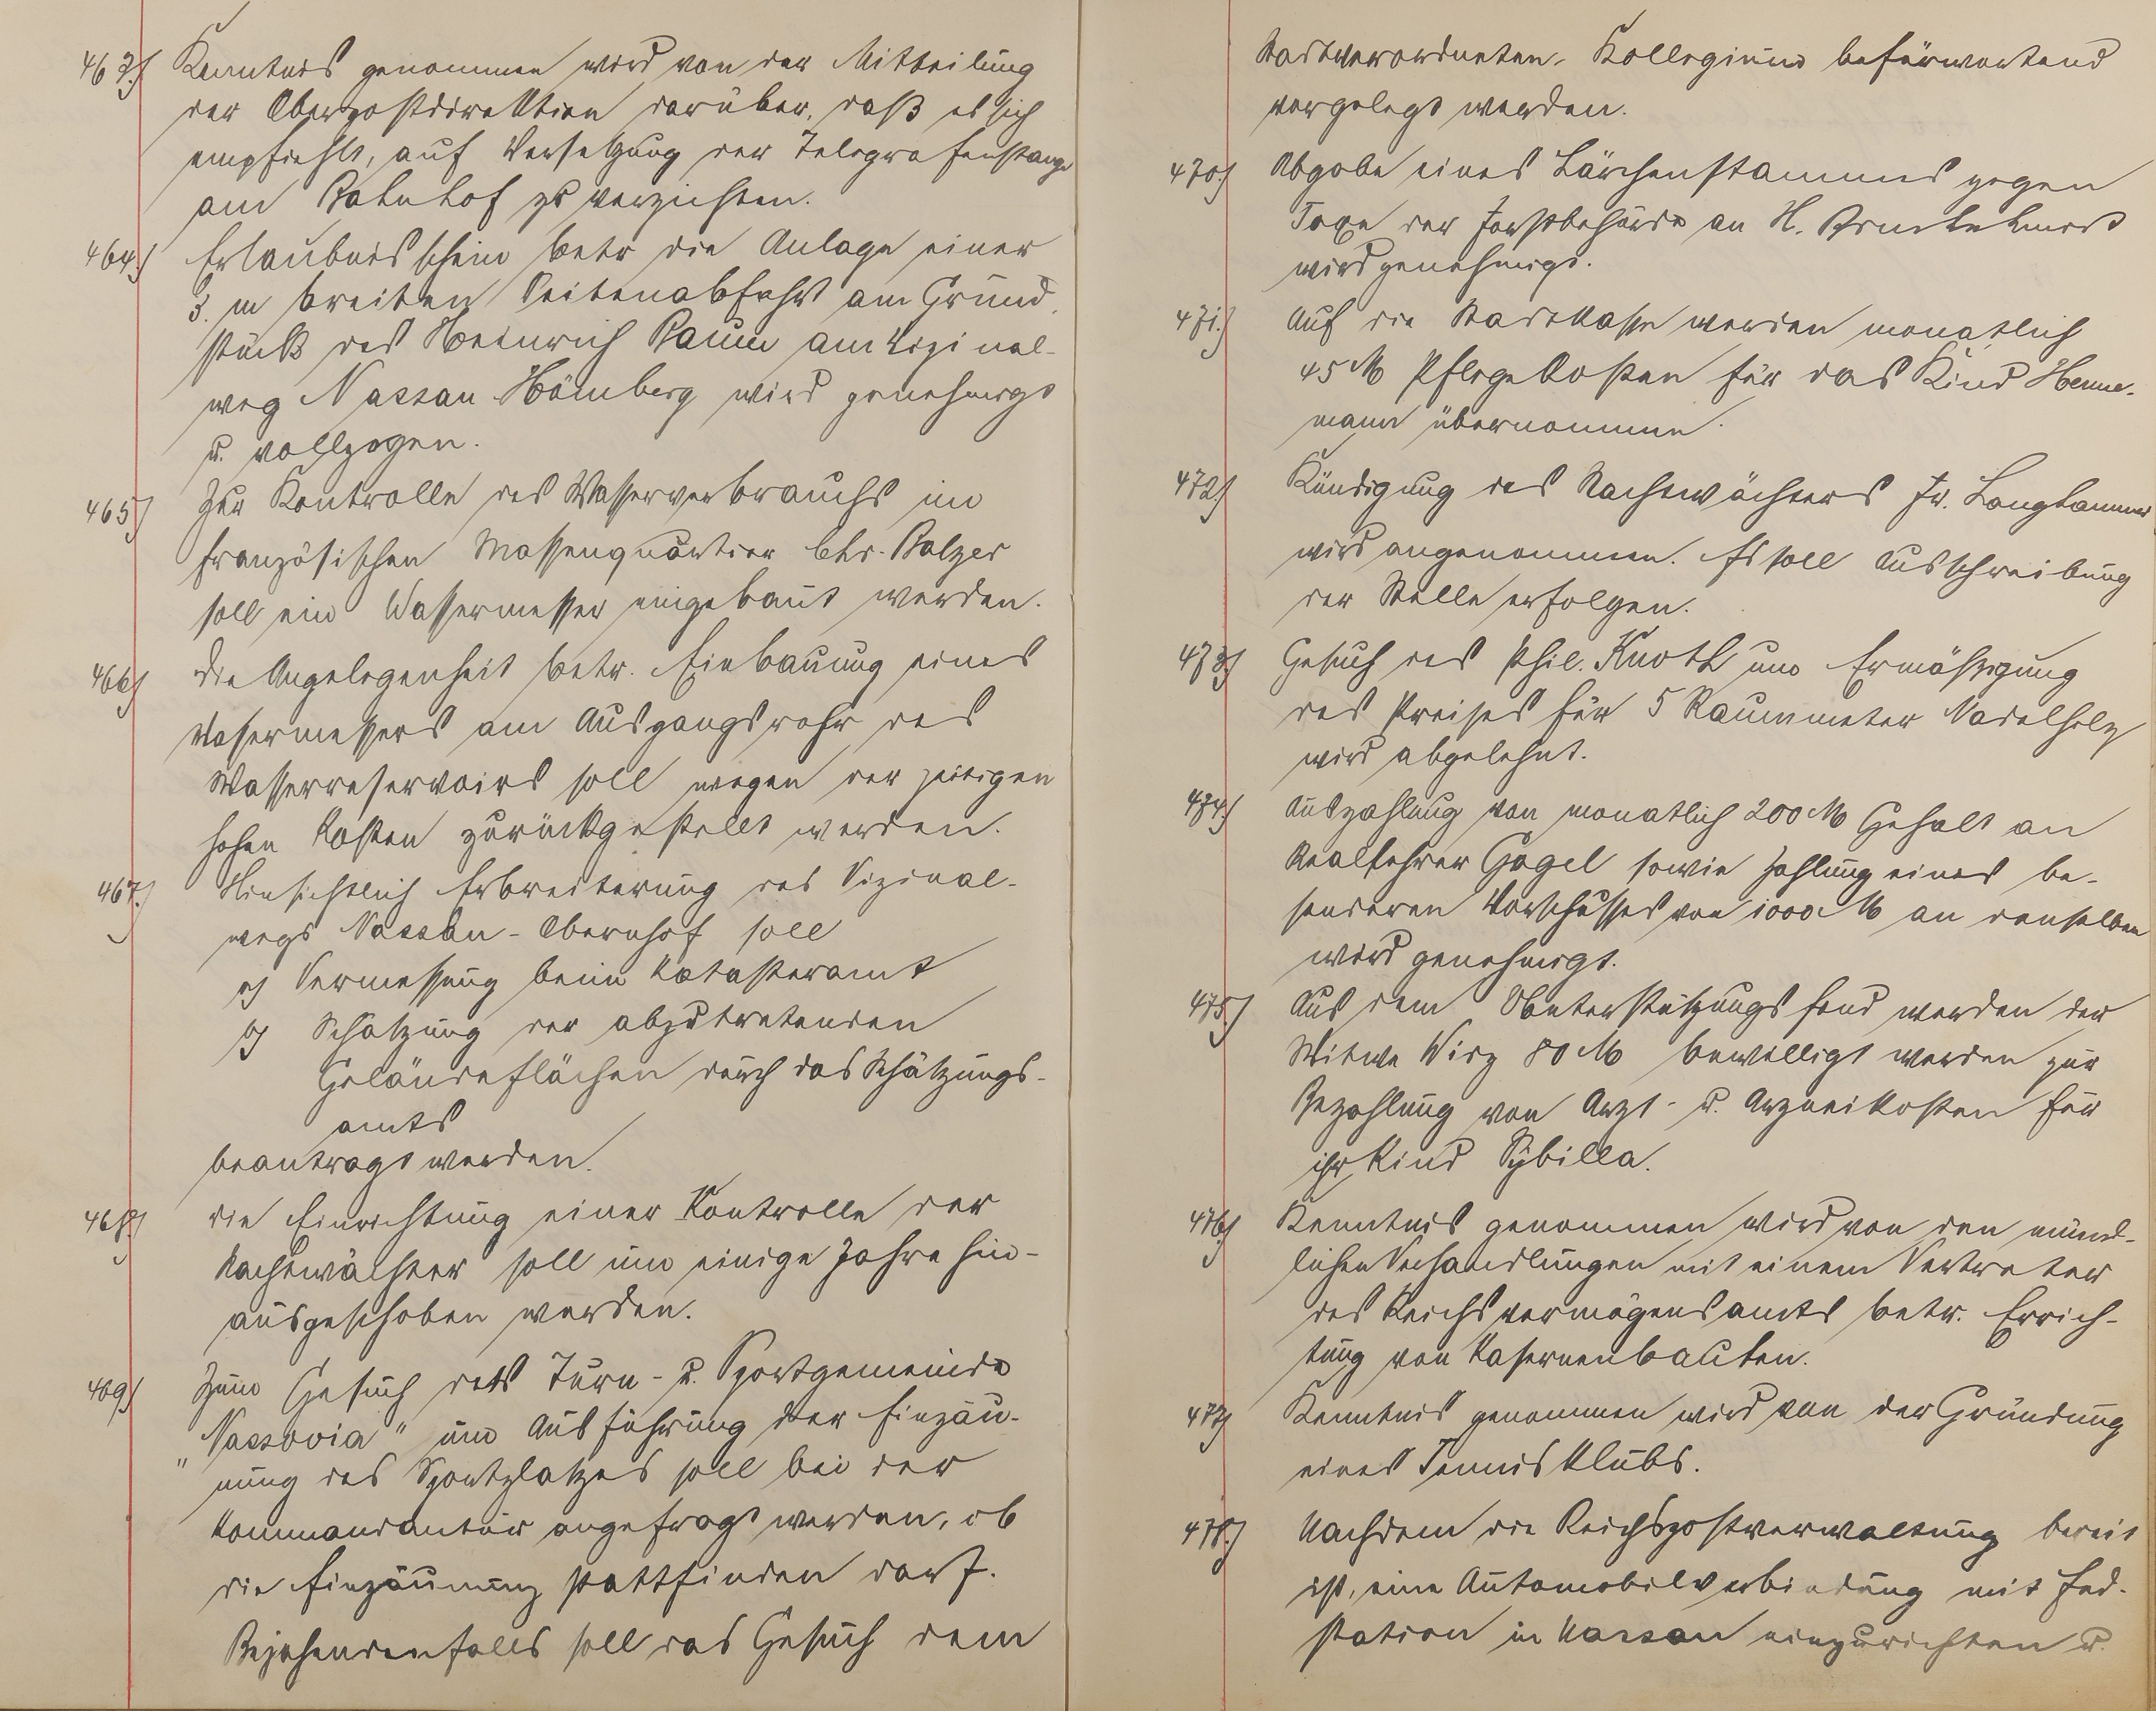 463.) Kenntnis genommen wird von der Mitteilung
der Oberpostdirektion darüber, daß es sich
empfiehlt, auf Versetzung der Telegrafenstange
am Bahnhof zu verzichten.
464.) Erlaubnisschein betr die Anlage einer
3. m breiten Seitenabfahrt am Grund-
stück des Heinrich Baum am Vizinal-
weg Nassau Hömberg wird genehmigt
u. vollzogen.
465) Zur Kontrolle des Wasserverbrauchs im
französischen Massenquartier btr. Balzer
soll ein Wassermesser eingebaut werden.
466) Die Angelegenheit betr. Einbauung eines
Wassermessers am Ausgangsrohr des
Wasserreservoirs soll wegen der zeitigen
hohen Kosten zurückgestellt werden.
467.) Hinsichtlich Erbreiterung des Vizinal-
wegs Nassau-Obernhof soll
a) Vermessung beim Katasteramt
b) Schätzung der abzutretenden
Geländeflächen durch das Schätzungs-
amts
beantragt werden.
468) die Einrichtung einer Kontrolle der
Nachtwächter soll um einige Jahre hin-
ausgeschoben werden.
469) Zum Gesuch des Turn- u. Sportgemeinde
"Nassovia" um Ausführung der Einzäu-
nung des Sportplatzes soll bei der
Kommandantur angefragt werden, ob
die Einzäunung stattfinden darf.
Bejahendenfalls soll das Gesuch dem
Stadtverordneten-Kollegium befürwortend
vorgelegt werden.
470) Abgabe eines Lärchenstammes gegen
Taxe der Forstbehörde an H.
wird genehmigt.
471.) Auf die Stadtkasse werden monatlich
45 M Pflegekosten für das Kind Henne-
mann übernommen.
472) Kündigung des Nachtwächters Fr. Langhammer
wird angenommen. Es soll Ausschreibung
der Stelle erfolgen.
473) Gesuch des Phil. Knoth um Ermäßigung
des Preises für 5 Raummeter Nadelholz
wird abgelehnt.
474.) Auszahlung von monatlich 200 M Gehalt an
Reallehrer Gagel sowie Zahlung eines be-
sonderen Vorschusses von 1000 M an denselben
wird genehmigt.
475.) Aus dem Unterstützungsfond werden der
Witwe Wirz 80 M bewilligt werden zur
Bezahlung von Arzt- u. Arzneikosten für
ihr Kind Sybilla.
476) Kenntnis genommen wird von den münd-
lichen Verhandlungen mit einem Vertreter
des Reichsvermögensamts betr. Errich-
tung von Kasernenbauten.
477) Kenntnis genommen wird von der Gründung
eines Tennisklubs.
478.) Nachdem die Reichspostverwaltung bereit
ist, eine Automobilverbindung mit End-
station in Nassau einzurichten u.